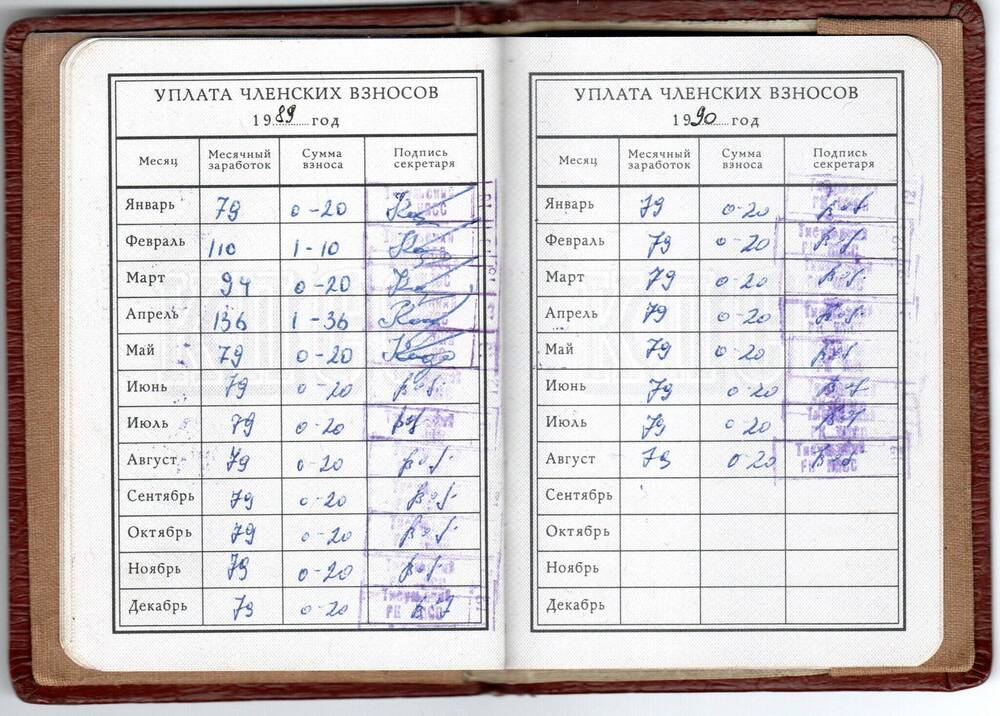 УПЛАТА ЧЛЕНСКИХ ВЗНОСОВ
1989 год
Месяц Месячный заработок Сумма взноса Подпись секретаря
Январь 79 0-20
Февраль 110 1-10
Март 94 0-20
Апрель 136 1-36
Май 79 0-20
Июнь 79 0-20
Июль 79 0-20
Август 79 0-20
Сентябрь 79 0-20
Октябрь 79 0-20
Ноябрь 79 0-20
Декабрь 79 0-20
УПЛАТА ЧЛЕНСКИХ ВЗНОСОВ
1990 год
Месяц Месячный заработок Сумма взноса Подпись секретаря
Январь 79 0-20
Февраль 79 0-20
Март 79 0-20
Апрель 79 0-20
Май 79 0-20
Июнь 79 0-20
Июль 79 0-20
Август 79 0-20
Сентябрь
Октябрь
Ноябрь
Декабрь